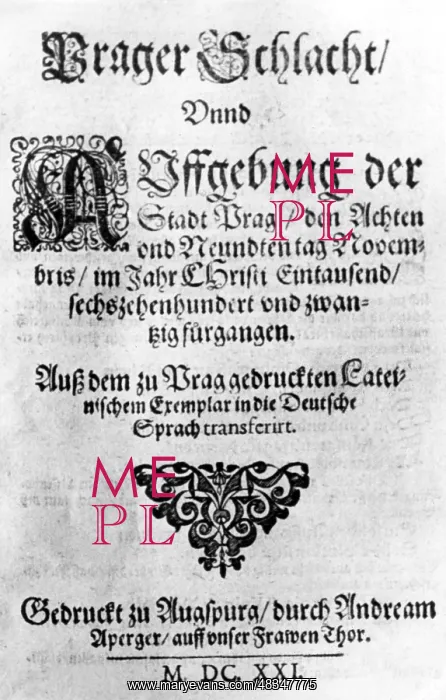 Prager Schlacht/
Vnnd
AVffgebung der
Stadt Prag / den Achten
vnd Neundten tag Novem-
bris / im Jahr CHristi Eintausend/
sechszehenhundert vnd zwan-
tzig fürgangen.
Auß dem zu Prag gedruckten Latei-
nischem Exemplar in die Deutsche
Sprach transferirt.
Gedruckt zu Augspurg/ durch Andream
Aperger/ auff vnser Frawen Thor.
M. DC. XXI.
ME
PL
ME
PL
www.maryevans.com/48947775